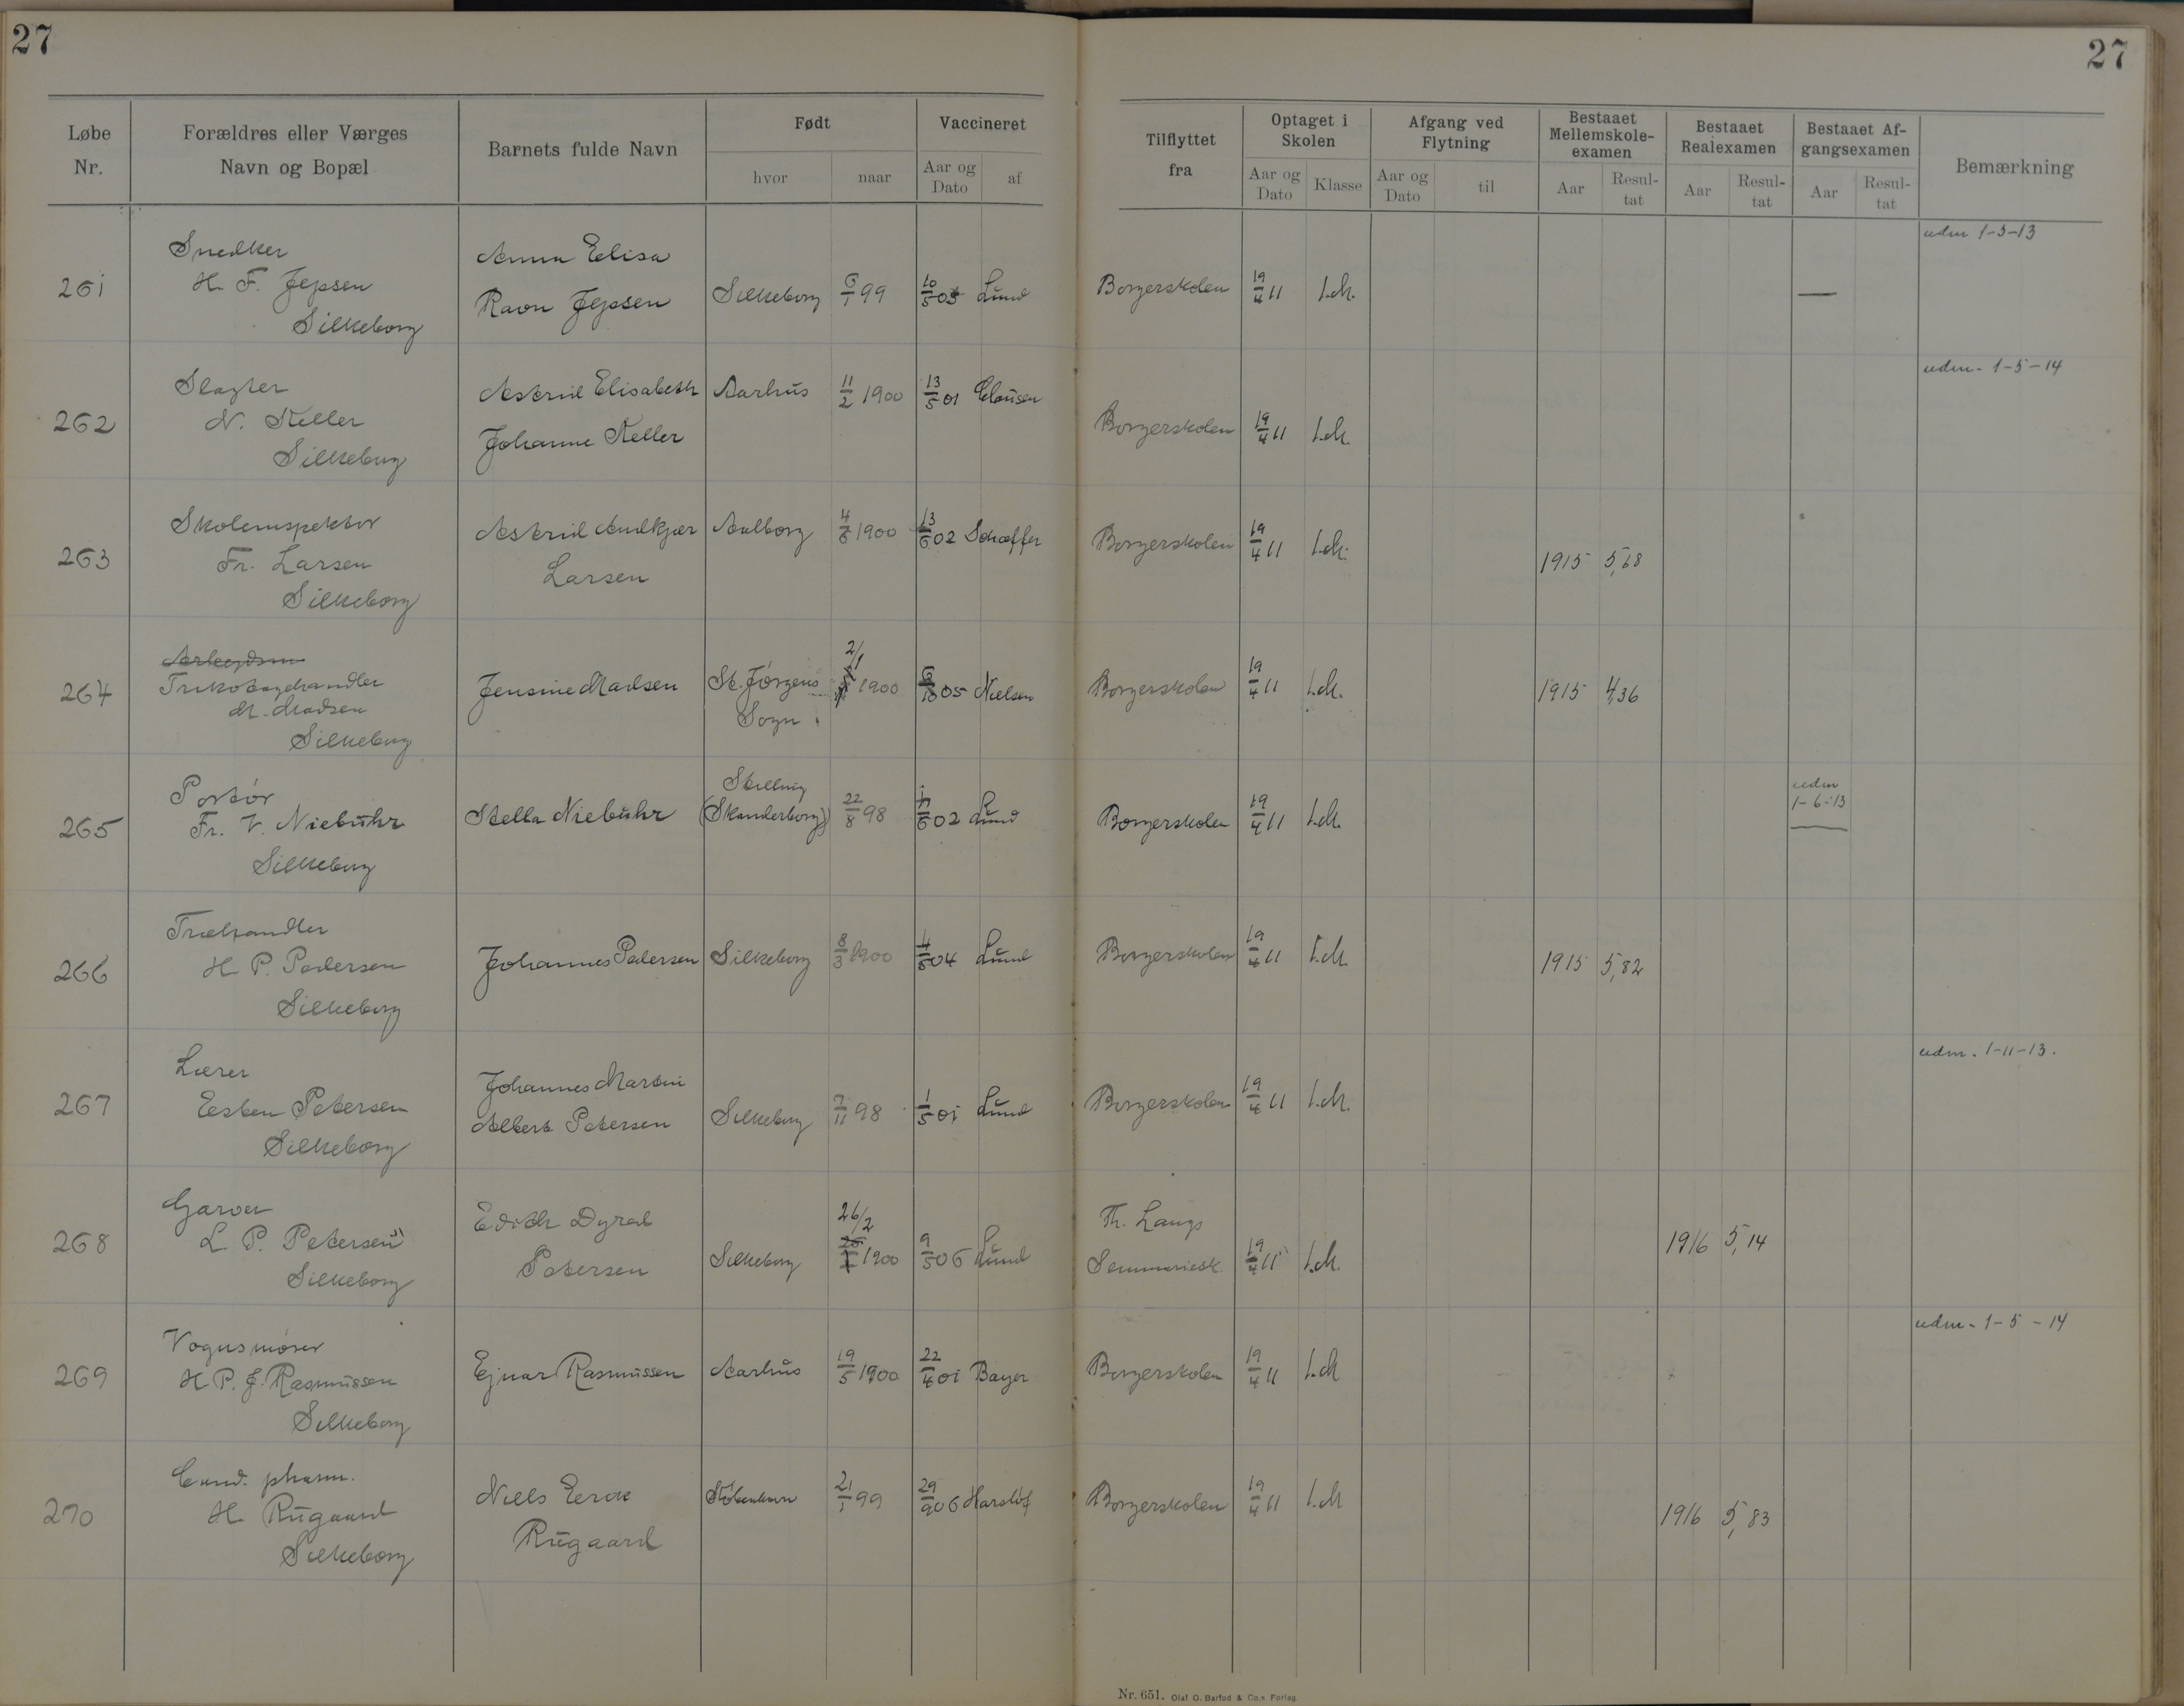 27
27
Løbe Nr.
Forældres eller Værges Navn og Bopæl
Barnets fulde Navn
Født
hvor
naar
Vaccineret
Aar og Dato
af
Tilflyttet fra
Optaget i Skolen
Aar og Dato
Klasse
Afgang ved Flytning
Aar og Dato
til
Bestaaet Mellemskole-examen
Aar
Resul-tat
Bestaaet Realexamen
Aar
Resul-tat
Bestaaet Af-gangsexamen
Aar
Resul-tat
Bemærkning
261
Snedker
H. F. Jepsen
Silkeborg
Anna Elisa
Ravn Jepsen
Silkeborg
6/1 99
10/5 05 Lund
Borgerskolen
19/4 11
I.M.
—
udm 1-3-13
262
Slagter
N. Keller
Silkeborg
Astrid Elisabeth
Johanne Keller
Aarhus
11/2 1900
13/5 01 Clausen
Borgerskolen
19/4 11
I.M.
udm. 1-5-14
263
Skoleinspektør
Fr. Larsen
Silkeborg
Astrid Andkjær
Larsen
Aalborg
4/6 1900
13/6 02 Schæffer
Borgerskolen
19/4 11
I.M.
1915 5,68
264
Arbejdsm
Trikotagehandler
M. Madsen
Silkeborg
Jensine Madsen
St. Jørgens
Sogn
2/1
1900
6/10 05 Nielsen
Borgerskolen
19/4 11
I.M.
1915 4,36
265
Portør
Fr. V. Niebuhr
Silkeborg
Stella Niebuhr
Stilling
(Skanderborg)
22/8 98
02 Lund
Borgerskolen
19/4 11
I.M.
udm
1-6-13
266
Træhandler
H. P. Pedersen
Silkeborg
Johannes Pedersen
Silkeborg
8/3 1900
4/5 04 Lund
Borgerskolen
19/4 11
I.M.
1915 5,82
267
Lærer
Esben Petersen
Silkeborg
Johannes Martin
Albert Petersen
Silkeborg
7/11 98
1/5 01 Lund
Borgerskolen
19/4 11
I.M.
udm. 1-11-13.
268
Garver
L. P. Petersen
Silkeborg
Edith Dyral
Petersen
Silkeborg
26/2
1900
9/5 06 Lund
Th. Langs
Seminariesk.
19/4 11
I.M.
1916 5,14
269
Vognsmører
H. P. J. Rasmussen
Silkeborg
Ejnar Rasmussen
Aarhus
19/5 1900
22/4 01 Bayer
Borgerskolen
19/4 11
I.M
udm. 1-5-14
270
Cand. pharm.
H. Rugaard
Silkeborg
Niels Erik
Rugaard
København
21/1 99
29/9 06 Harsløf
Borgerskolen
19/4 11
I.M
1916 5,83
Nr. 651. Olaf O. Barfod & Co.s Forlag.